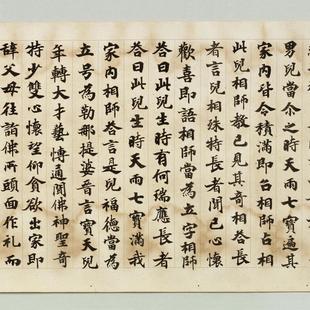 男兒當尒之時天雨七寶遍其
家內皆令積滿即召相師占相
此兒相師覩已見其奇相荅長
者言兒相殊特長者聞已心懷
歡喜即語相師當為立字相師
荅曰此兒生時有何瑞應長者
荅曰此兒生時天雨七寶滿我
家內相師荅言是兒福德當為
立号為勒那提婆晉言寶天兒
年轉大才藝博通聞佛神聖奇
特少雙心懷望仰貪欲出家即
辞父母往詣佛所頭面作礼而